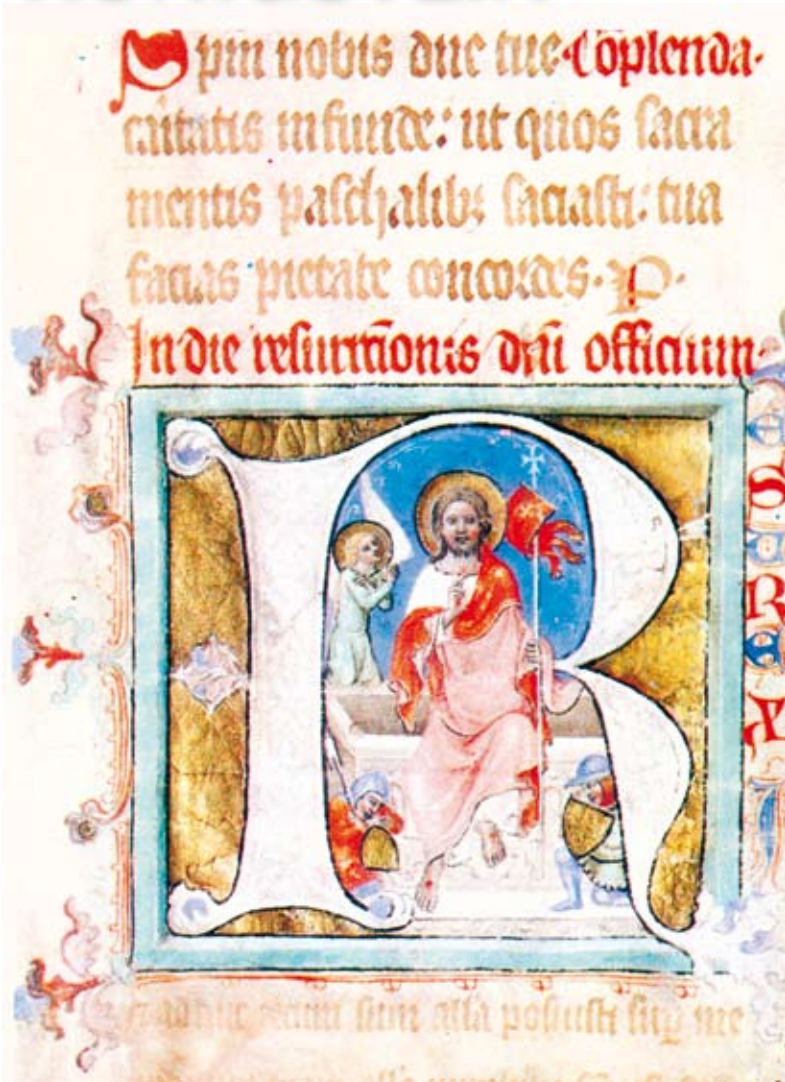 Spm nobis dne tue Coplenda.
caitatis infunde: ut quos sacra
mentis paschalib: saciasti: tua
facias pietate concordes. P.
In die resurrcionis dni officium.
R
ESURREX
adhuc tecum sum alla posuisti sup me